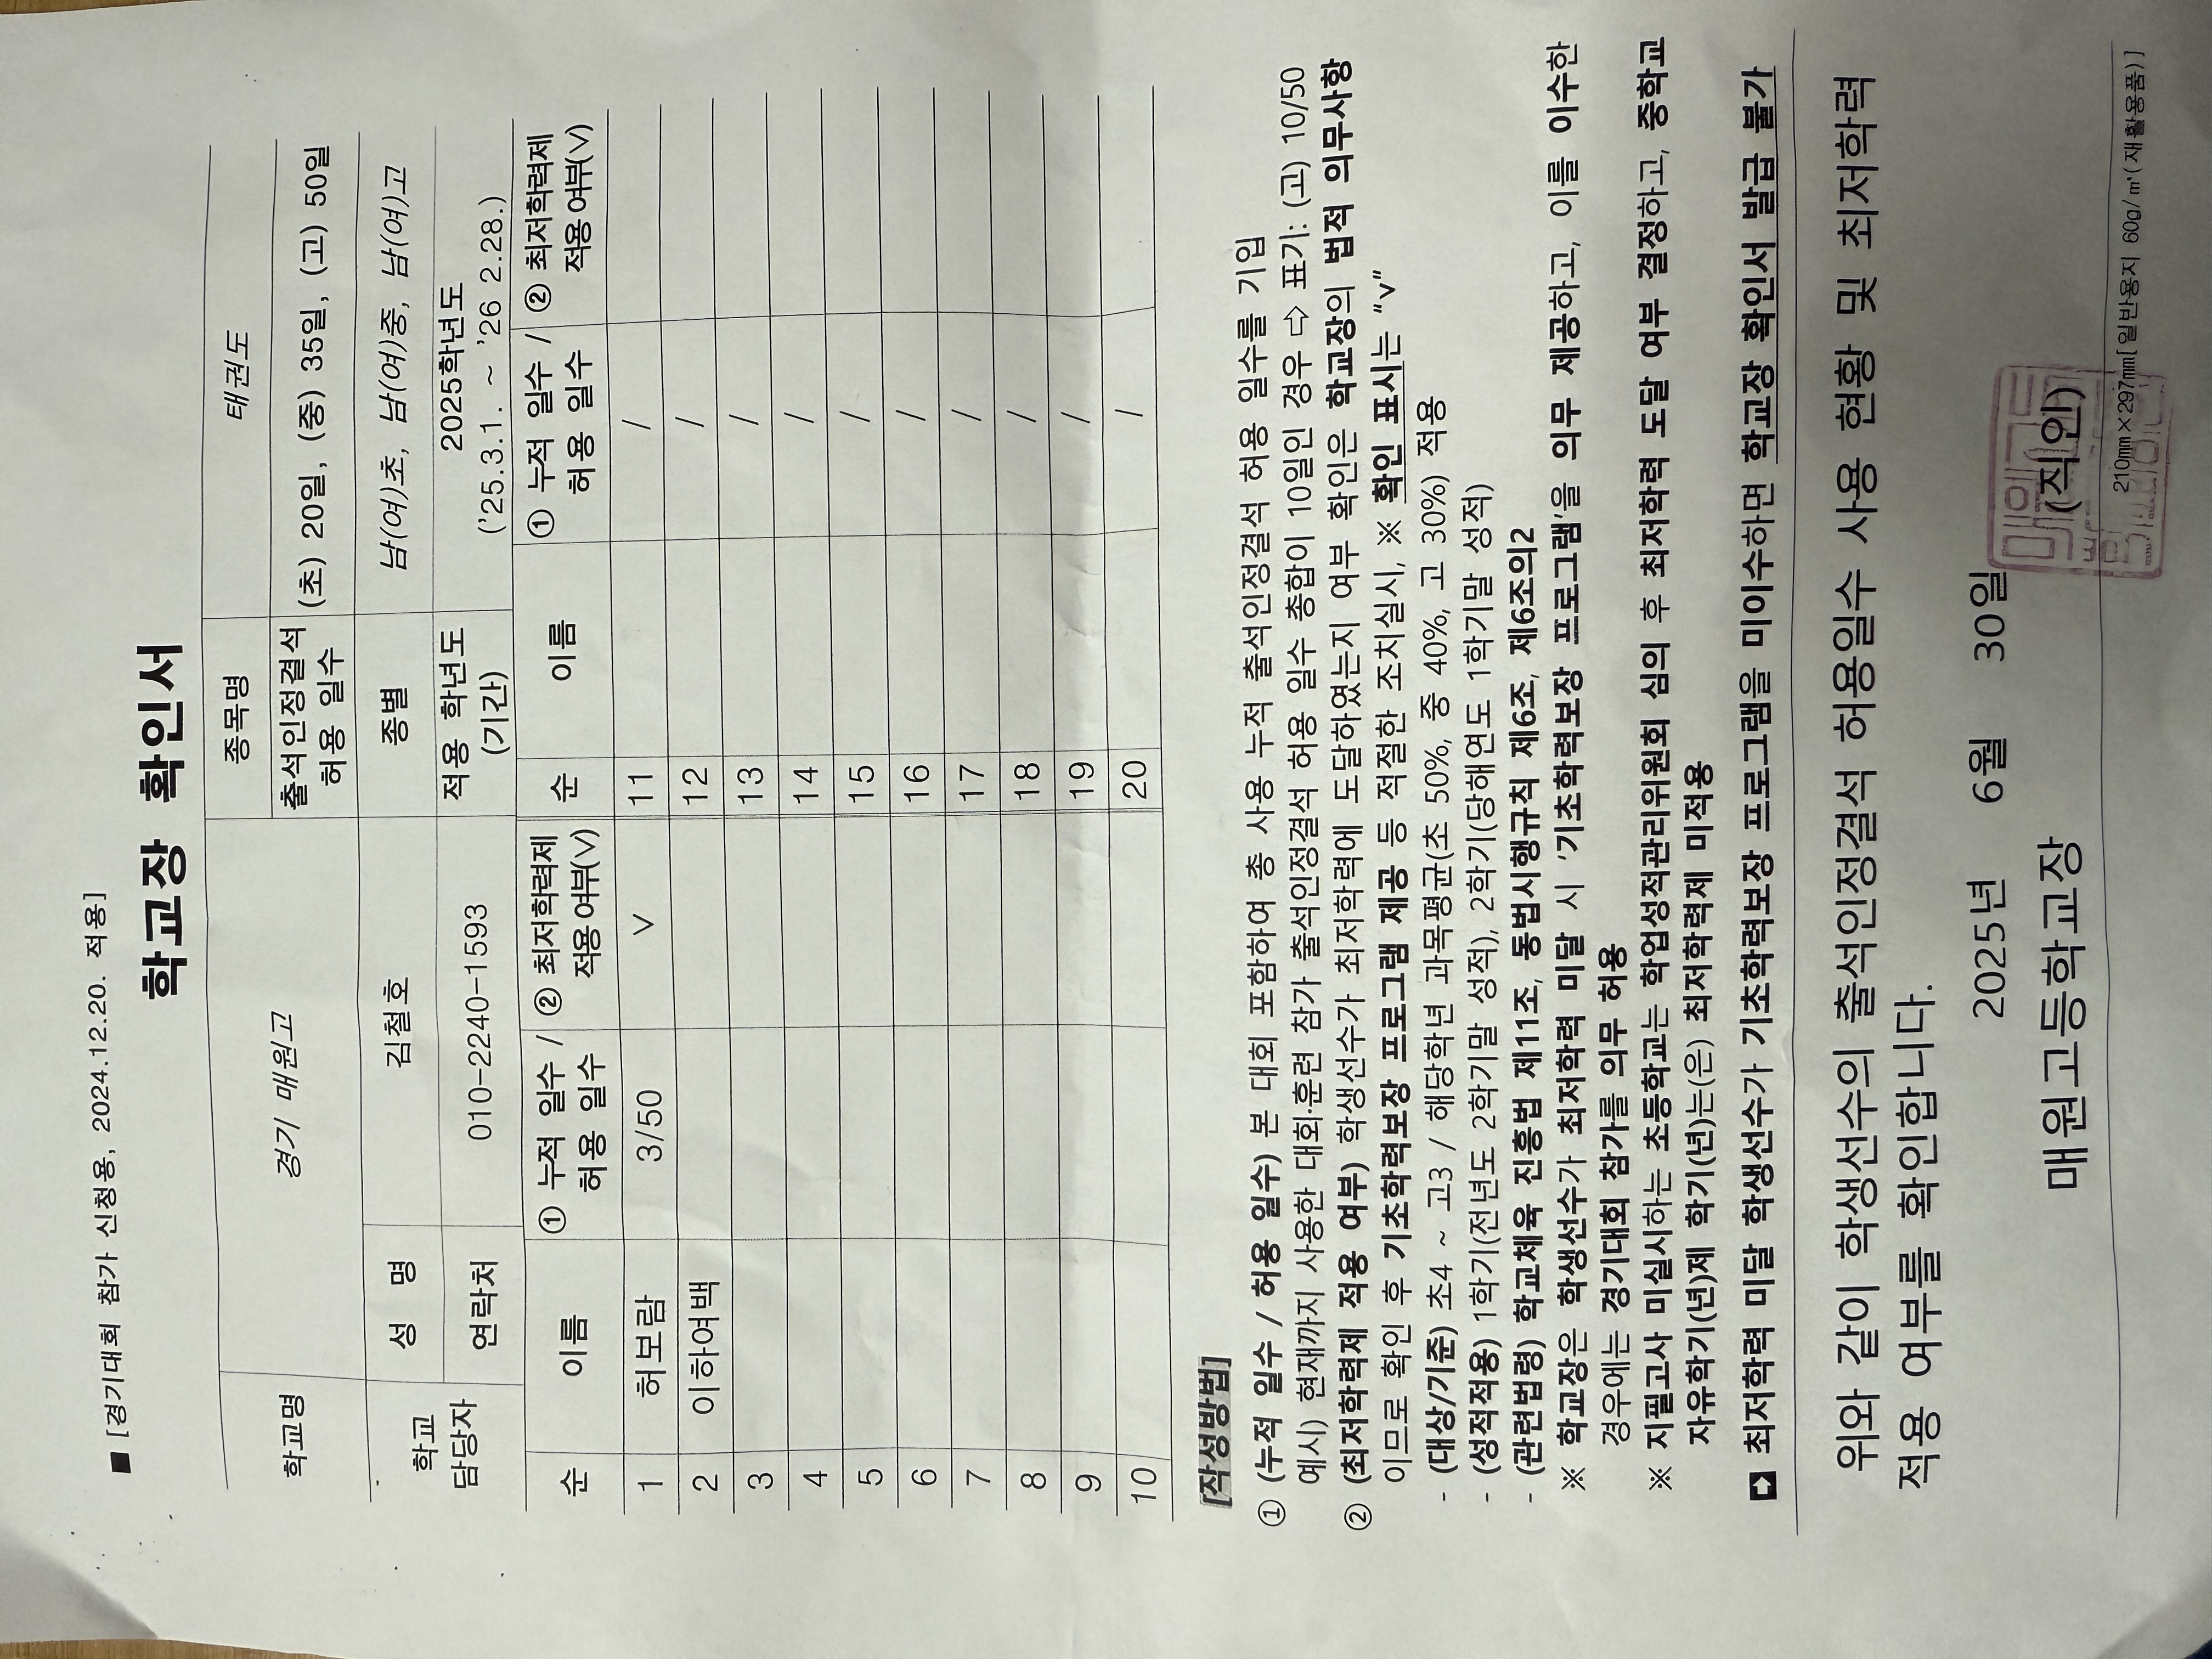 ■ [경기대회 참가 신청용, 2024.12.20. 적용]
학교장 확인서
학교명 경기 매원고 종목명 태권도
출석인정결석 허용 일수 (초) 20일, (중) 35일, (고) 50일
학교 담당자 성 명 김철호 종별 남(여)초, 남(여)중, 남(여)고
연락처 010-2240-1593 적용 학년도 (기간) 2025학년도 ('25.3.1. ~ '26 2.28.)
순 이름 ① 누적 일수 / 허용 일수 ② 최저학력제 적용 여부(∨) 순 이름 ① 누적 일수 / 허용 일수 ② 최저학력제 적용 여부(∨)
1 허보람 3/50 ∨ 11 /
2 이하여백 12 /
3 13 /
4 14 /
5 15 /
6 16 /
7 17 /
8 18 /
9 19 /
10 20 /
[작성방법]
① (누적 일수 / 허용 일수) 본 대회 포함하여 총 사용 누적 출석인정결석 허용 일수를 기입
예시) 현재까지 사용한 대회·훈련 참가 출석인정결석 허용 일수 총합이 10일인 경우 ⇨ 표기: (고) 10/50
② (최저학력제 적용 여부) 학생선수가 최저학력에 도달하였는지 여부 확인은 학교장의 법적 의무사항
이므로 확인 후 기초학력보장 프로그램 제공 등 적절한 조치실시, ※ 확인 표시는 “v”
- (대상/기준) 초4 ~ 고3 / 해당학년 과목평균(초 50%, 중 40%, 고 30%) 적용
- (성적적용) 1학기(전년도 2학기말 성적), 2학기(당해연도 1학기말 성적)
- (관련법령) 학교체육 진흥법 제11조, 동법시행규칙 제6조, 제6조의2
※ 학교장은 학생선수가 최저학력 미달 시 '기초학력보장 프로그램'을 의무 제공하고, 이를 이수한
경우에는 경기대회 참가를 의무 허용
※ 지필고사 미실시하는 초등학교는 학업성적관리위원회 심의 후 최저학력 도달 여부 결정하고, 중학교
자유학기(년)제 학기(년)는(은) 최저학력제 미적용
➡ 최저학력 미달 학생선수가 기초학력보장 프로그램을 미이수하면 학교장 확인서 발급 불가
위와 같이 학생선수의 출석인정결석 허용일수 사용 현황 및 최저학력
적용 여부를 확인합니다.
2025년 6월 30일
매원고등학교장 (직인)
210㎜×297㎜[일반용지 60g/㎡(재활용품)]